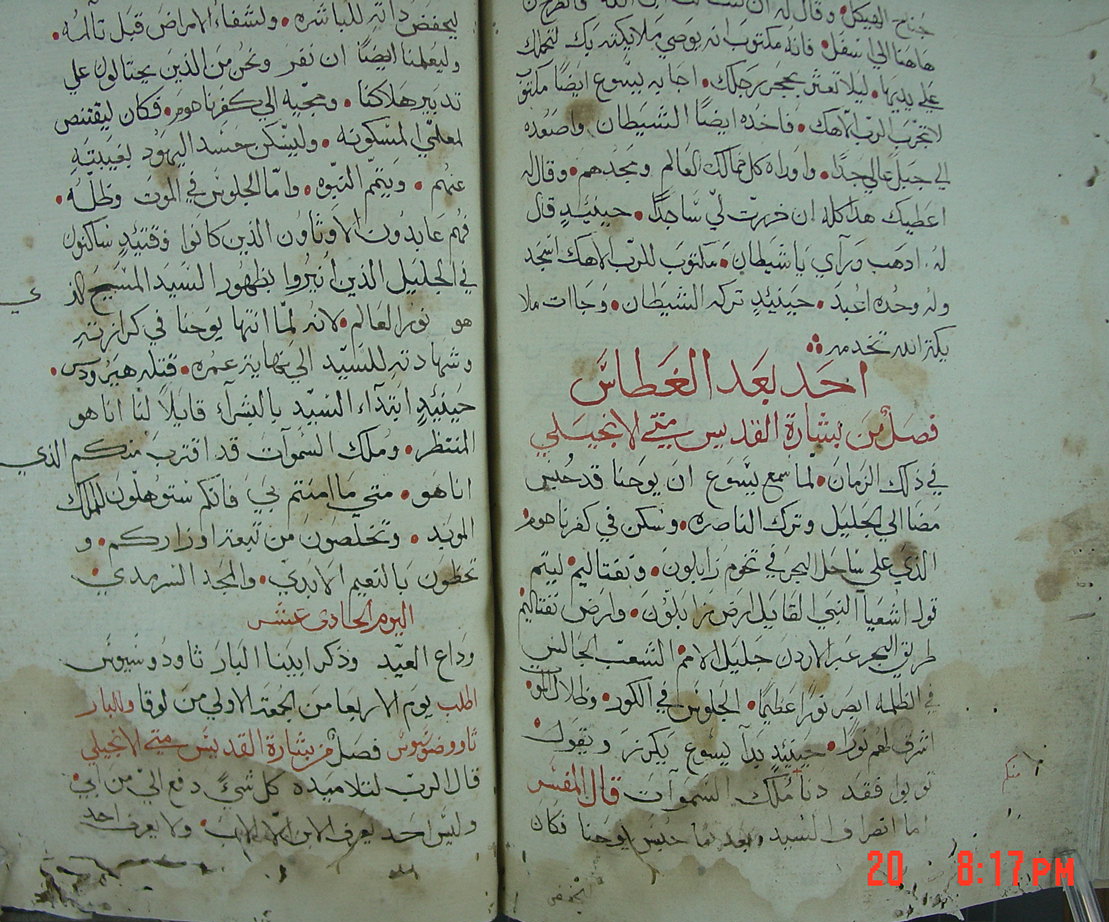 جناح الهيكل • وقال له ان كنت
هاهنا الي اسفل • فانه مكتوب انه يوصي ملايكته بك لتحملك
علي يديها • ليلا تعثر بحجر رجلك • اجابه يسوع ايضًا مكتوب
لا تجرب الرب الاهك • فاخده ايضًا الشيطان واصعده
الي جبل عالي جدًا • واوراه كل ممالك العالم ومجدهم • وقال له
اعطيك هدا كله ان خررت لي ساجدًا • حينيدٍ قال
له ادهب ورآي ياشيطان • مكتوب للرب الاهك اسجد
وله وحده اعبد • حينيدٍ تركه الشيطان • وجاات ملا
يكة الله تخدمه
احد بعد الغطاس
فصل من بشارة القديس متي الانجيلي
في ذلك الزمان • لما سمع يسوع ان يوحنا قد حبس
مضا الي الجليل وترك الناصره • وسكن في كفرناحوم
الذي علي ساحل البحر في تخوم زابلون • ونفتاليم • ليتم
قول اشعيا النبي القايل ارض زابلون • وارض نفتاليم
طريق البحر عبر الاردن جليل الامم • الشعب الجالس
في الظلمه ابصر نورًا عظيمًا • الجلوس في الكور • وظلال الموت
اشرق لهم نورًا • حينيدٍ بدآ يسوع يكرز ويقول •
توبوا فقد دنا ملك السموات قال المفسر
اما انصراف السيد وبعد ما حبس يوحنا فكان
ليخفض
ليخفض داته للباشره • ولشفاء الامراض قبل تالمه •
وليعلمنا ايضًا ان نفر ونحن من الذين يحتالون علي
تدبير هلاكنا • ومجيه الي كفرناحوم • فكان ليقتنص
لمعلمي المسكونه • وليسكن حسد اليهود بغيبته
عنهم • ويتمم النبوه • واما الجلوس في الموت وظله •
فهم عابدون الاوثان الذين كانوا وقتيدٍ ساكنون
في الجليل الذين انيروا بظهور السيد المسيح الذي
هو نور العالم • لانه لما انتها يوحنا في كرازته
وشهادته للسيد الي نهاية عمره • قتله هيرودس •
حينيدٍ ابتدآء السيد بالبشرآء قايلاً لنا انا هو
المنتظر • وملك السموآت قد اقترب منكم الذي
انا هو • متي ما امنتم بي فانكم ستوهلون للملك
الموبد • وتخلصون من تبعة اوزاركم • و
تحظون بالنعيم الابدي • والمجد السرمدي
اليوم الحادي عشر
وداع العيد وذكر ابينا البار ثاودوسيوس
اطلب يوم الاربعا من الجمعة الاولي من لوقا وللبار
ثاوضوسيوس فصل من بشارة القديس متي الانجيلي
قال الرب لتلاميده كل شيءٍ دفع الي من ابي
وليس احد يعرف الابن الا الاب • ولا يعرف احد
20 8:17 PM